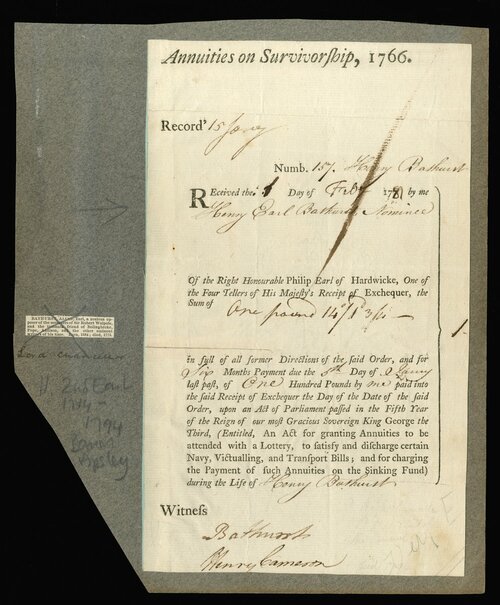 Annuities on Survivorship, 1766.
Record' 15 Jany
Numb. 157. Henry Bathurst
REceived the Day of Feby 1781 by me
Henry Earl Bathurst Nominee
Of the Right Honourable Philip Earl of Hardwicke, One of
the Four Tellers of His Majesty's Receipt of Exchequer, the
Sum of One pound 14/
in full of all former Directions of the said Order, and for
Six Months Payment due the 5th Day of Jany
last past, of One Hundred Pounds by me paid into
the said Receipt of Exchequer the Day of the Date of the said
Order, upon an Act of Parliament passed in the Fifth Year
of the Reign of our most Gracious Sovereign King George the
Third, (Entitled, An Act for granting Annuities to be
attended with a Lottery, to satisfy and discharge certain
Navy, Victualling, and Transport Bills; and for charging
the Payment of such Annuities on the Sinking Fund)
during the Life of Henry Bathurst
Witness
Bathurst
Henry Cameron
BATHURST, ALLEN, Earl, a zealous op-
poser of the measures of Sir Robert Walpole,
and the intimate friend of Bolingbroke,
Pope, Addison, and the other eminent
writers of his time. Born, 1684; died, 1775.
Lord Chancellor
2nd Earl
1714 -
1794
Baron
Apsley